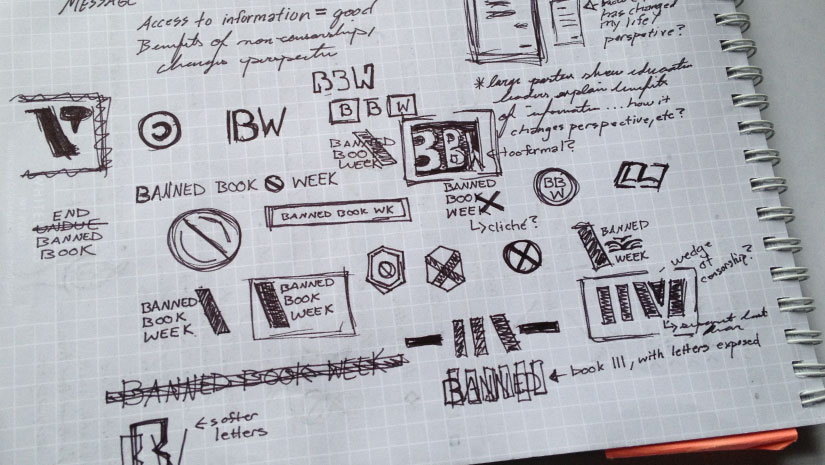 MESSAGE
Access to information = good
Benefits of non-censorship,
changes perspective
has changed
my life /
perspective?
* large poster show education
leaders explain benefits
of information ... how it
changes perspective, etc?
BBW
B B W
BW
BANNED
BOOK
WEEK
BBW
too formal?
BANNED BOOK WEEK
BANNED
BOOK
WEEK
cliché?
BB
W
END
UNDUE
BANNED
BOOK
BANNED BOOK WK
BANNED
WEEK
wedge
at
censorship?
BANNED
BOOK
WEEK
BANNED
BOOK
WEEK
BANNED BOOK WEEK
BANNED
book ill, with letters exposed
softer
letters